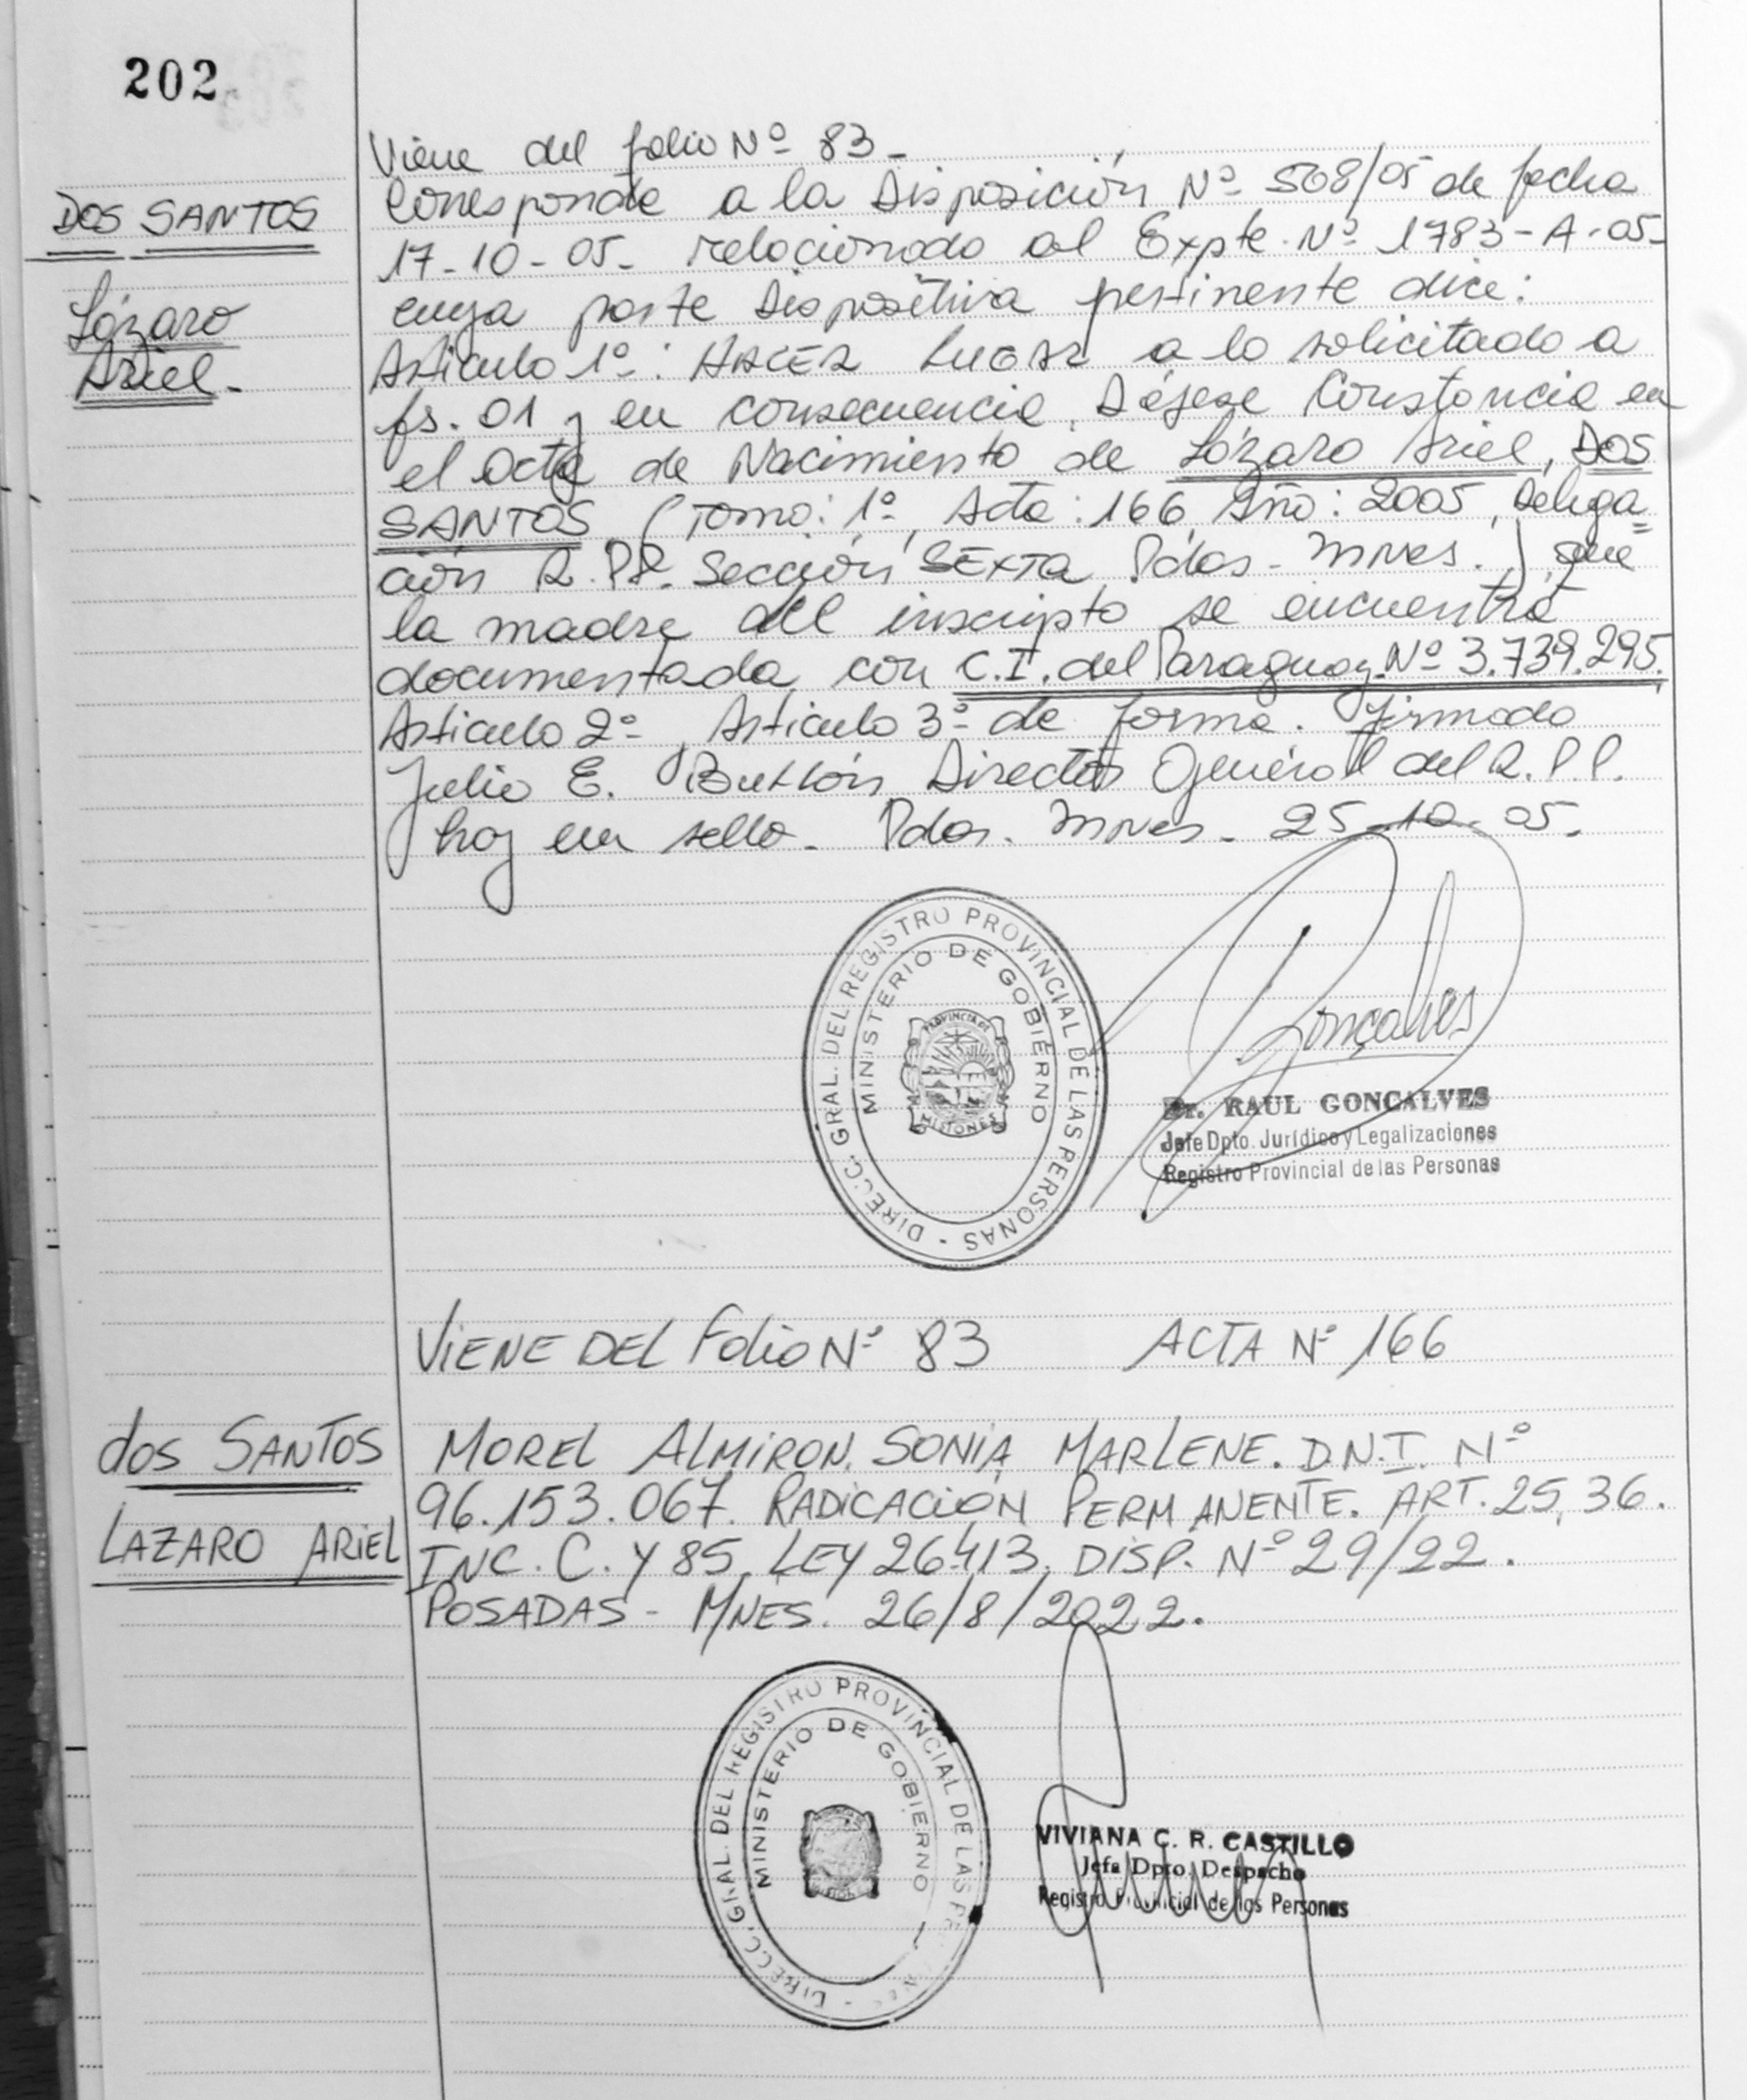 202
Viene del folio Nº 83-
DOS SANTOS
Lázaro
Ariel-
Corresponde a la Disposición Nº 508/05 de fecha
17-10-05- relacionado al Expte. Nº 1783-A-05-
cuya parte Dispositiva pertinente dice:
Artículo 1º: HACER LUGAR a lo solicitado a
fs. 01 y en consecuencia, Déjese Constancia en
el acta de Nacimiento de Lázaro Ariel, DOS
SANTOS (Tomo: 1º, Acta: 166, Año: 2005, Delega=
ción R.PP. Sección SEXTA, Pdas- Mnes.) que
la madre del inscripto se encuentra
documentada con C.I. del Paraguay Nº 3.739.295.
Artículo 2º, Artículo 3º de forma. Firmado
Julio E. Director General del R.P.P.
hay un sello- Pdas. Mnes- 25-10-05.
DIRECC. GRAL. DEL REGISTRO PROVINCIAL DE LAS PERSONAS -
MINISTERIO DE GOBIERNO
PROVINCIA DE
MISIONES
Goncalves
Dr. RAUL GONCALVES
Jefe Dpto. Jurídico y Legalizaciones
Registro Provincial de las Personas
VIENE DEL Folio Nº 83 ACTA Nº 166
dos SANTOS
LAZARO ARIEL
MOREL ALMIRON, SONIA MARLENE. D.N.I. Nº
96.153.067. RADICACIÓN PERMANENTE. ART. 25, 36.
INC. C. Y 85, LEY 26413. DISP. Nº 29/22.
POSADAS - MNES. 26/8/2022.
DIRECC. GRAL. DEL REGISTRO PROVINCIAL DE LAS
MINISTERIO DE GOBIERNO
VIVIANA C. R. CASTILLO
Jefa Dpto. Despacho
Registro Provincial de las Personas